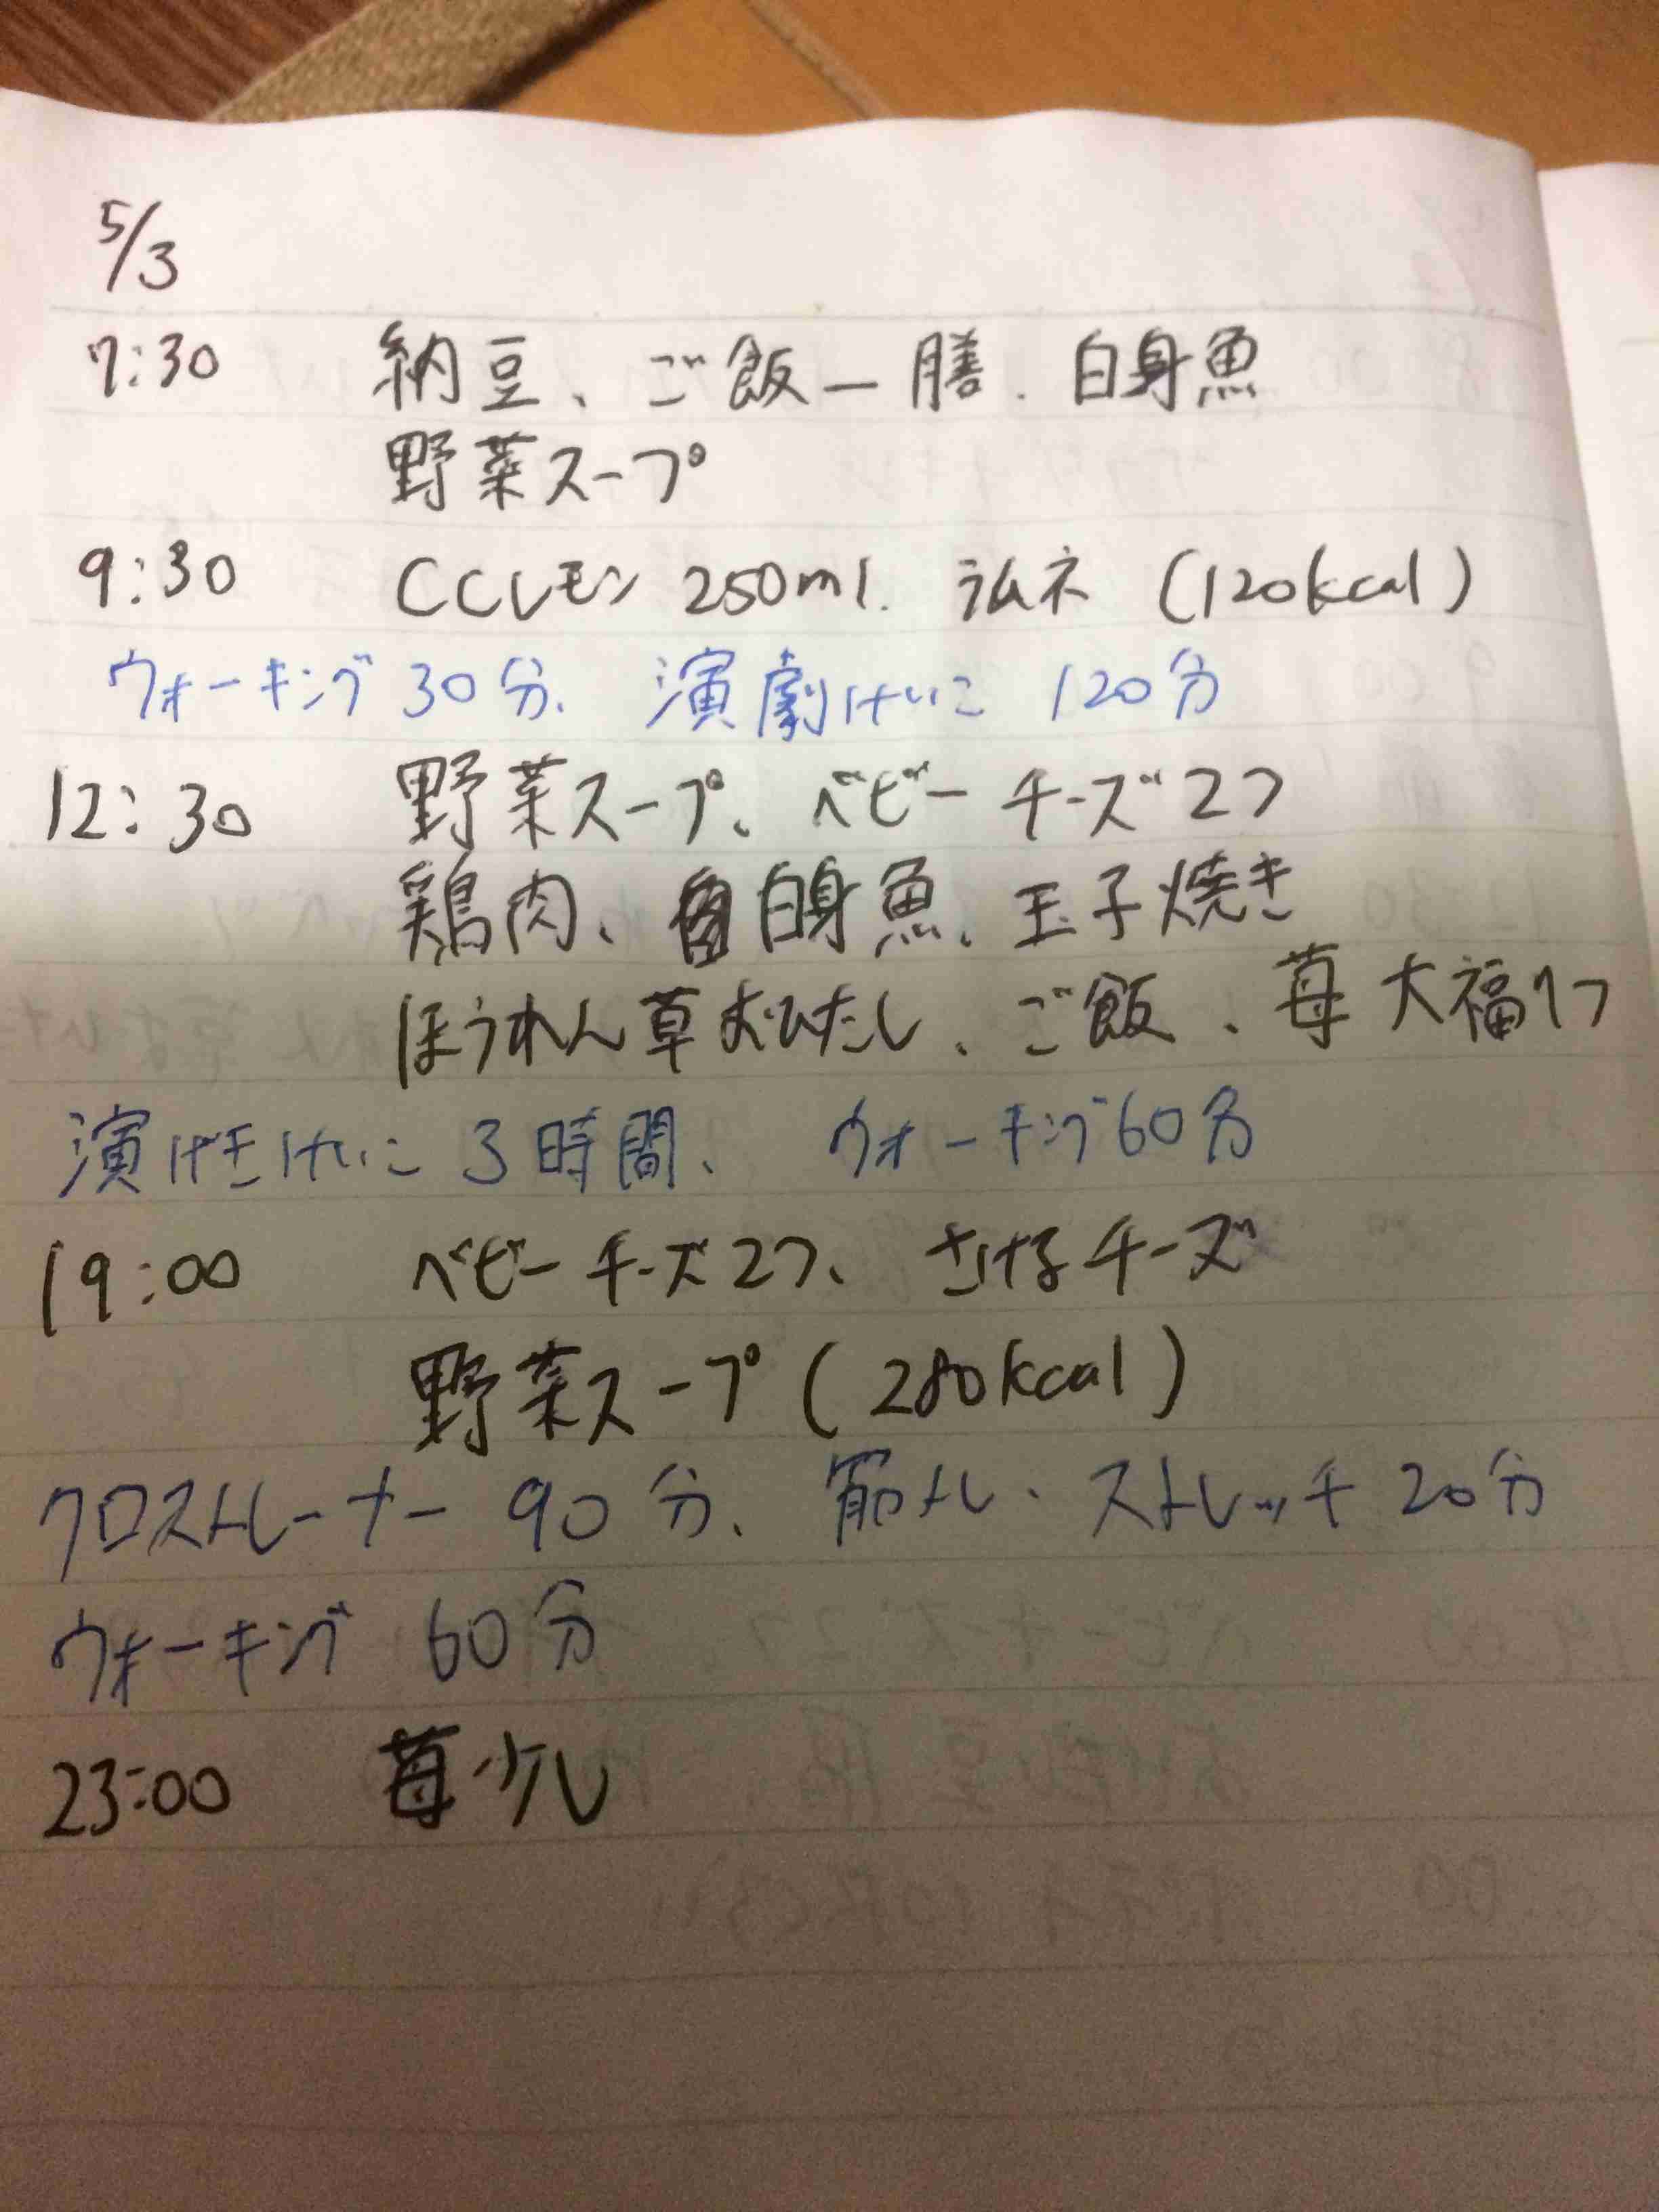 5/3
7:30 納豆、ご飯一膳、白身魚
野菜スープ
9:30 CCレモン 250ml. ラムネ (120kcal)
ウォーキング 30分、演劇けいこ 120分
12:30 野菜スープ、ベビーチーズ2つ
鶏肉、白身魚、玉子焼き
ほうれん草おひたし、ご飯、苺大福1つ
演げきけいこ 3時間、ウォーキング60分
19:00 ベビーチーズ2つ、さけるチーズ
野菜スープ (280kcal)
クロストレーナー 90分、筋トレ・ストレッチ 20分
ウォーキング 60分
23:00 苺少し